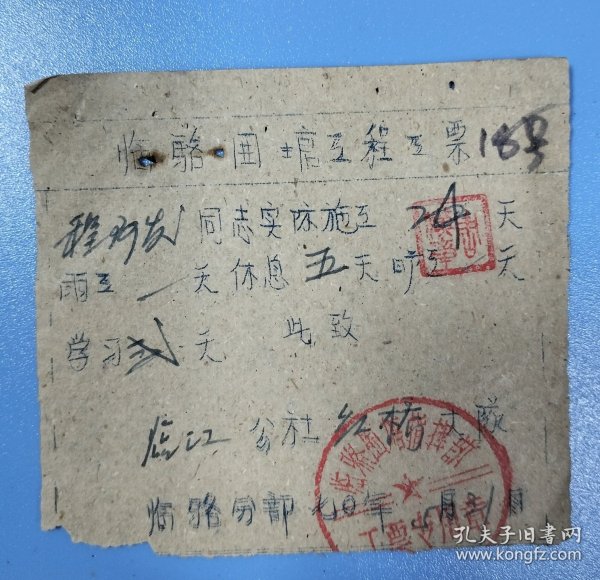 临骆围垦工程工票 18号
程 同志实际施工 24 天
雨工 一 天休息 五 天旷工 一 天
学习 天 此致
临江 公社 红桥 大队
临骆分部 七〇年 5月31日
孔夫子旧书网
www.kongfz.com